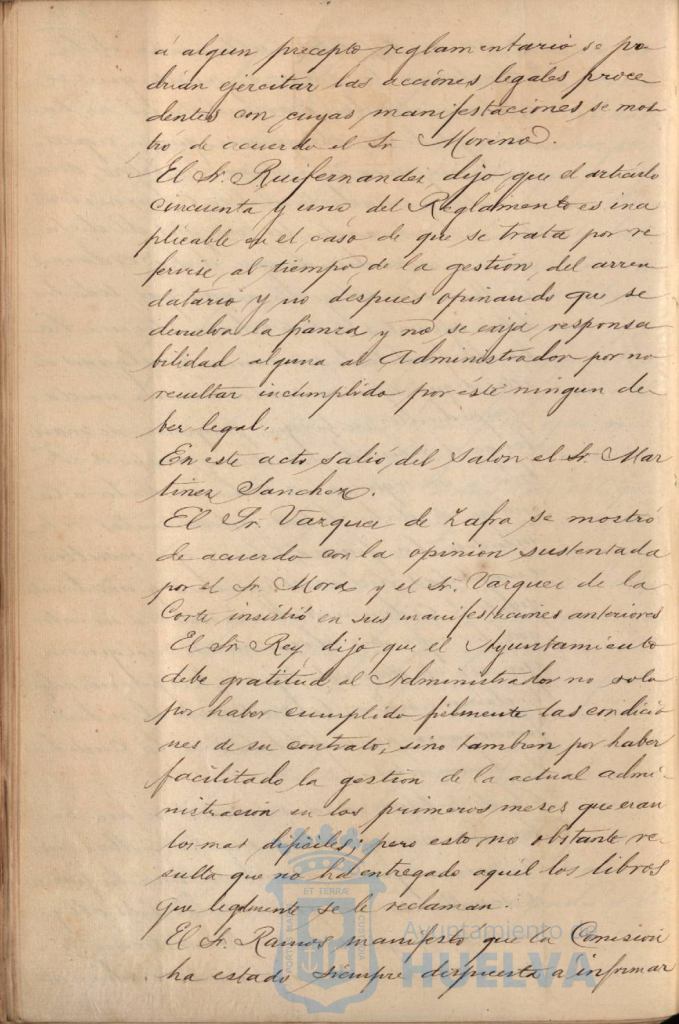 á algun precepto reglamentario se po
drian ejercitar las acciones legales proce
dentes con cuyas manifestaciones se mos
tro de acuerdo el Sr. Moreno.
El Sr. Ruifernandez, dijo que el articulo
cincuenta y uno, del Reglamento es ina
plicable en el caso de que se trata por re
ferirse, al tiempo, de la gestion, del arren
datario y no despues opinando que se
devuelva la fianza y no, se exija responsa
bilidad alguna al Administrador por no
resultar incumplido por éste ningun de
ber legal.
En este acto, salió, del salon el Sr. Mar
tinez Sanchez.
El Sr. Vazquez de Zafra, se mostró
de acuerdo con la opinion sustentada
por el Sr. Mora y el Sr. Vazquez de la
Corte insistió en sus manifestaciones anteriores
El Sr. Rey, dijo que el Ayuntamiento
debe gratitud, al Administrador no solo
por haber cumplido fielmente las condicio
nes de su contrato, sino tambien por haber
facilitado la gestion de la actual admi-
nistracion en los primeros meses que eran
los mas dificiles; pero esto no obstante re-
sulta que no ha entregado aquél los libros
que legalmente se le reclaman.
El Sr. Ramos manifestó que la Comision
ha estado siempre dispuesta a informar
ET TERRÆ
Ayuntamiento de
HUELVA